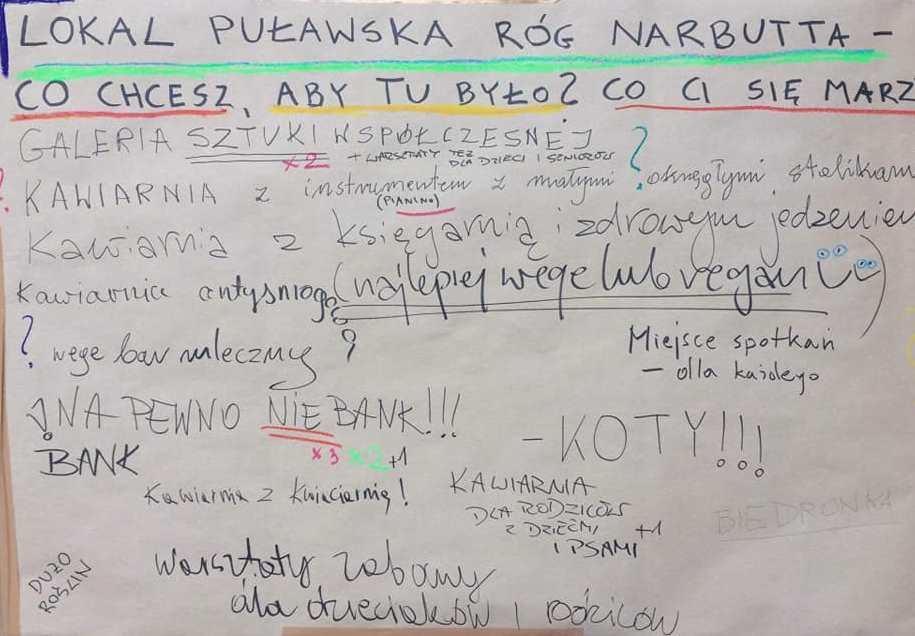 LOKAL PUŁAWSKA RÓG NARBUTTA –
CO CHCESZ, ABY TU BYŁO? CO CI SIĘ MARZ
GALERIA SZTUKI WSPÓŁCZESNEJ ?
x2 + WARSZTATY TEŻ
DLA DZIECI I SENIORÓW
KAWIARNIA z instrumentem z małymi, okrągłymi stolikam
(PIANINO)
Kawiarnia z księgarnią i zdrowym jedzeniem
(najlepiej wege lub vegan)
kawiarnia antysmog
? wege bar mleczny ?
Miejsce spotkań
– dla każdego
NA PEWNO NIE BANK!!!
x3 x2 +1
BANK
– KOTY!!!
Kawiarnia z kwiaciarnią!
KAWIARNIA
DLA RODZICÓW
Z DZIEĆMI
I PSAMI +1
BIEDRONKA
DUŻO
ROŚLIN
Warsztaty, zabawy
dla dzieciaków i rodziców